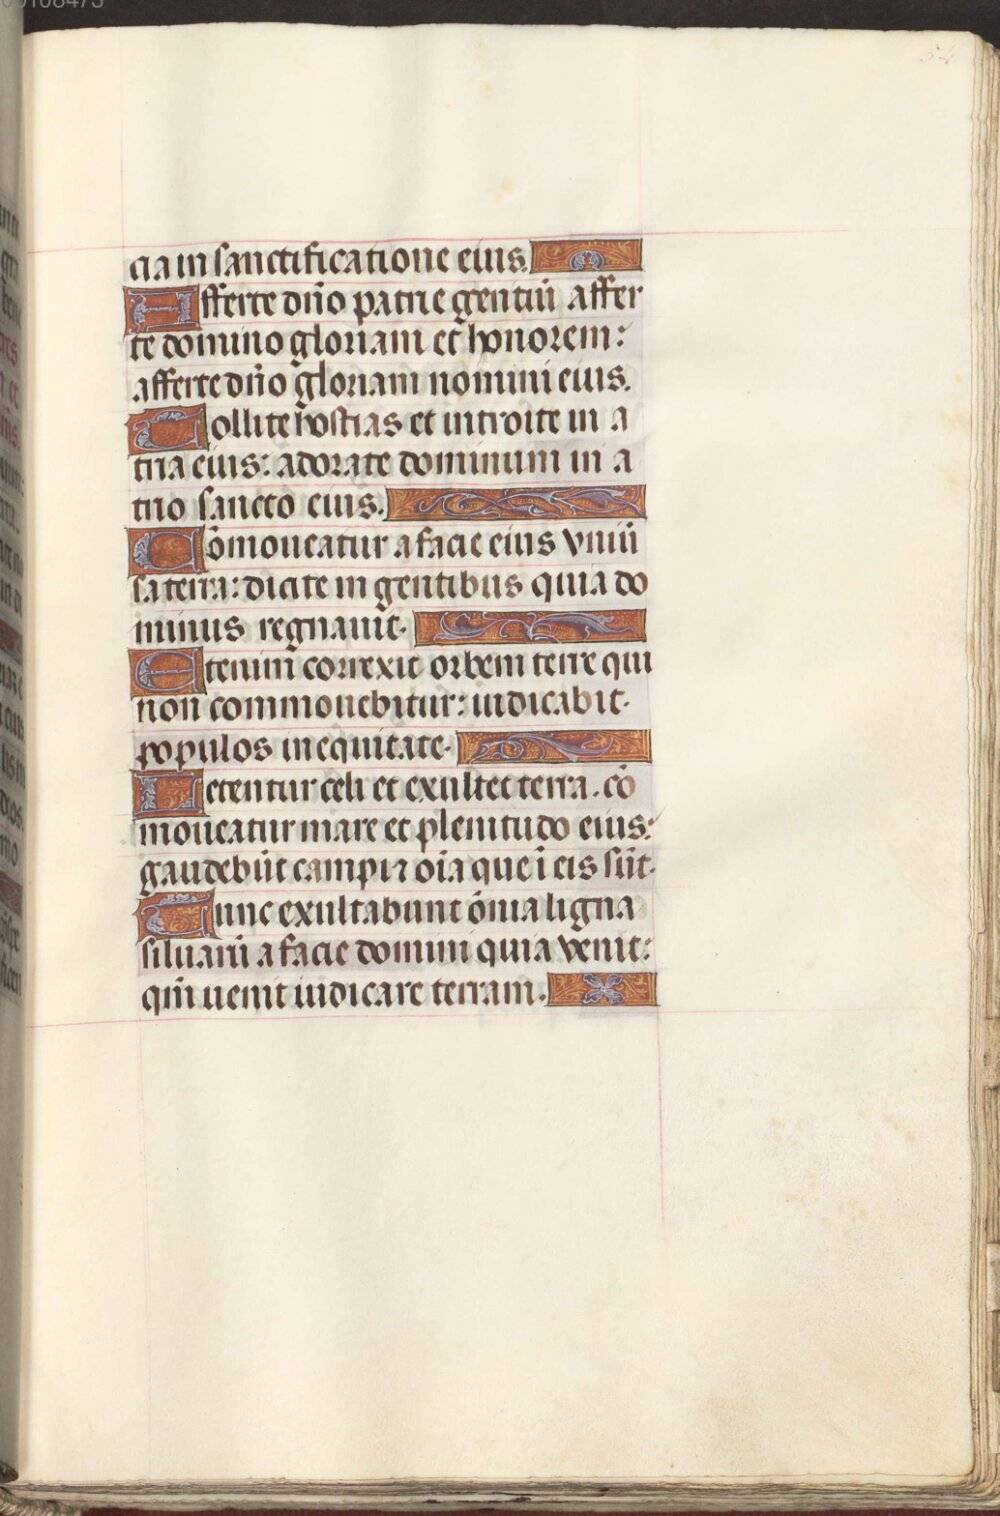 54
cia in sanctificatione eius.
Afferte dn̄o patrie gentiū affer
te domino gloriam et honorem:
afferte dn̄o gloriam nomini eius.
Tollite hostias et introite in a
tria eius: adorate dominum in a
trio sancto eius.
Cōmoueatur a facie eius vniū
sa terra: dicite in gentibus quia do
minus regnauit.
Etenim correxit orbem terre qui
non commouebitur: iudicabit.
populos in equitate.
Letentur celi et exultet terra. cō
moueatur mare et plenitudo eius:
gaudebūt campi ⁊ oīa que ī eis sūt.
Tunc exultabunt ōnia ligna
siluarū a facie domini quia venit:
qm̄ uenit iudicare terram.